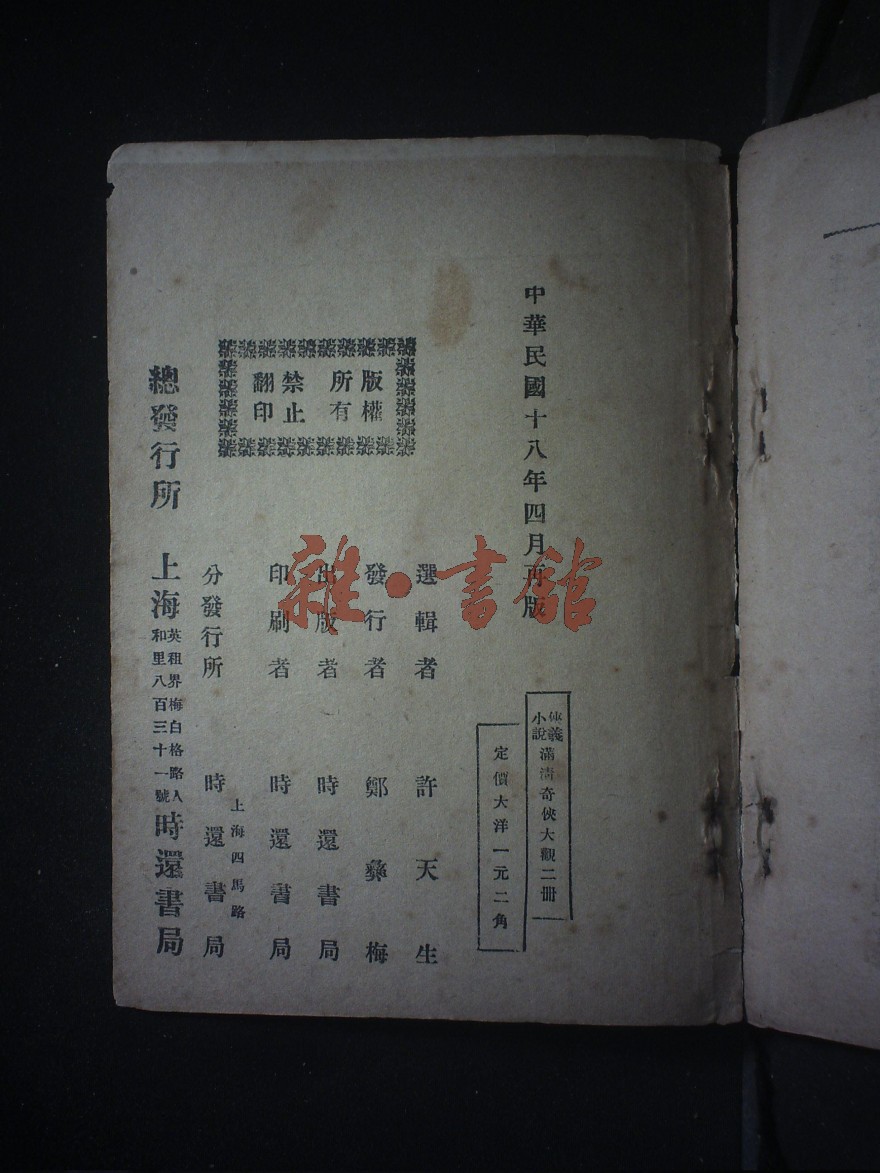 中華民國十八年四月再版
俠義小說 滿清奇俠大觀二册
定價大洋一元二角
版權
所有
禁止
翻印
選輯者 許天生
發行者 鄭彝梅
出版者 時還書局
印刷者 時還書局
上海四馬路
分發行所 時還書局
總發行所 上海 英租界梅白格路人和里八百三十一號 時還書局
雜·書館